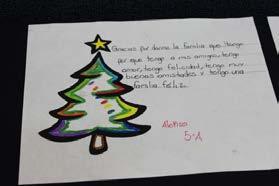 Gracias por darme la familia que tengo
por que tengo a mis amigos, tengo
amor, tengo felicidad, tengo muy
buenas amistades y tengo una
familia feliz.
Alonso
5-A